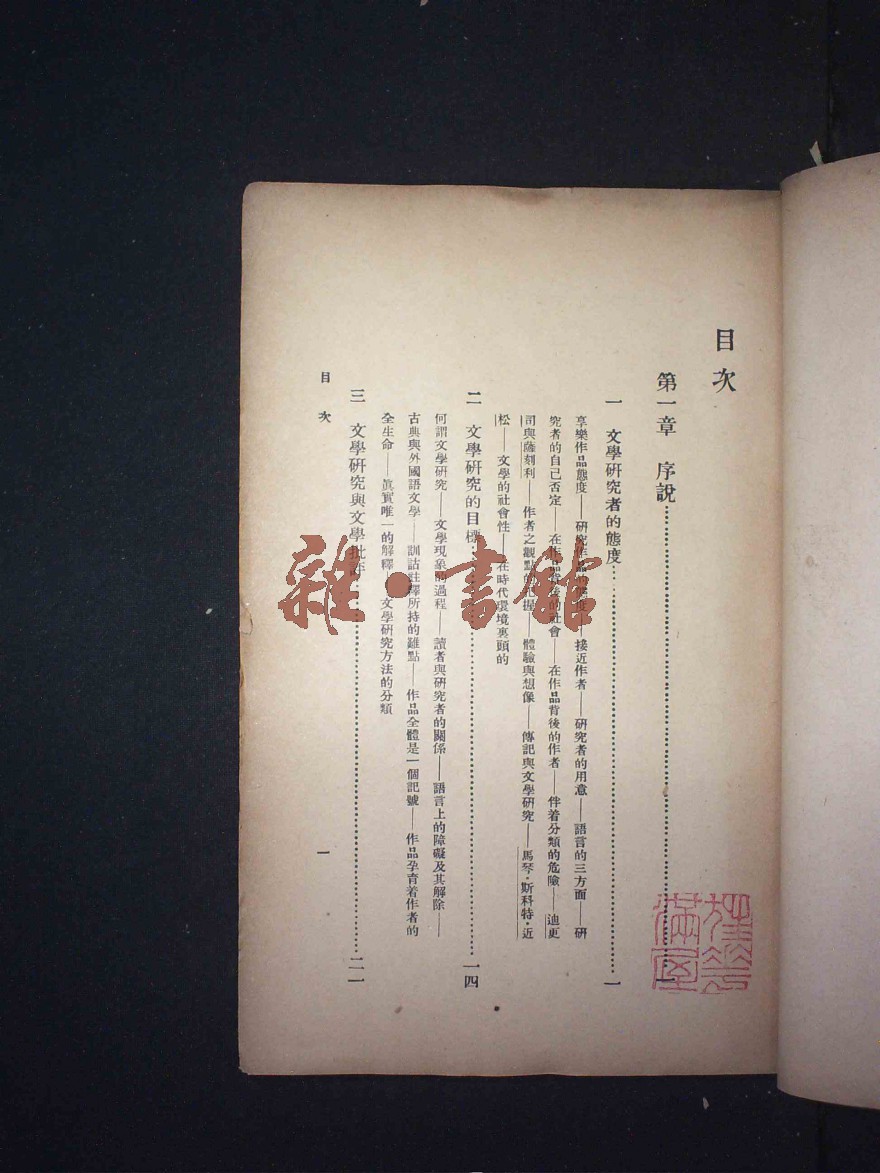 目次
第一章 序說……………………一
一 文學研究者的態度……………………一
享樂作品態度——研究作品的態度——接近作者——研究者的用意——語言的三方面——研
究者的自己否定——在作品背後的社會——在作品背後的作者——伴着分類的危險——迪更
司與薩刻利——作者之觀點的把握——體驗與想像——傳記與文學研究——馬琴·斯科特·近
松——文學的社會性——在時代環境裏頭的
二 文學研究的目標……………………一四
何謂文學研究——文學現象的過程——讀者與研究者的關係——語言上的障礙及其解除——
古典與外國語文學——訓詁註釋所持的難點——作品全體是一個記號——作品孕育着作者的
全生命——眞實唯一的解釋——文學研究方法的分類
三 文學研究與文學批評……………………二一
目次
一
雜·書館
滿